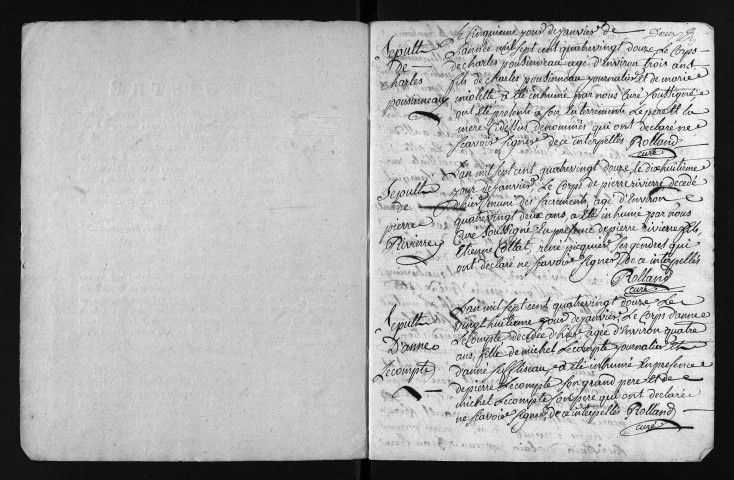 Deux
Le Cinquieme jour de janvier de
Sepult L'année mil sept cent quatrevingt douze, Le Corps
De de charles pousinneau agé d'Environ trois ans
charles fils de charles pousinneau journalier Et de marie
pousinneau miolette, a Eté inhumé par nous Curé soussigné
ont Eté presents a son Enterrement Le pere Et la
mere cidessus denommés qui ont declaré ne
scavoir signer de ce interpellés Rolland
curé
L'an mil sept cent quatrevingt douze, Le dixhuitieme
Sepult jour de janvier, Le Corps de pierre rivierre decedé
de d'hier, muni des sacrements, agé d'Environ
pierre quatrevingt deux ans, a Eté inhumé par nous
Rivierre Curé soussigné En presence de pierre rivierre fils,
Etienne Collat, rené picquet ses gendres qui
ont declaré ne scavoir signer de ce interpellés
Rolland
curé
L'an mil sept cent quatrevingt douze, Le
Sepult vingthuitieme jour de janvier, Le Corps d'anne
D'anne Lecompte decedée d'hier, agée d'Environ quatre
Lecompte ans, fille de michel Lecompte journalier Et
d'anne Suffliseau, a Eté inhumé En presence
de pierre Lecompte son grand pere Et de
michel Lecompte son pere qui ont declaré
ne scavoir signer de ce interpellés Rolland
curé